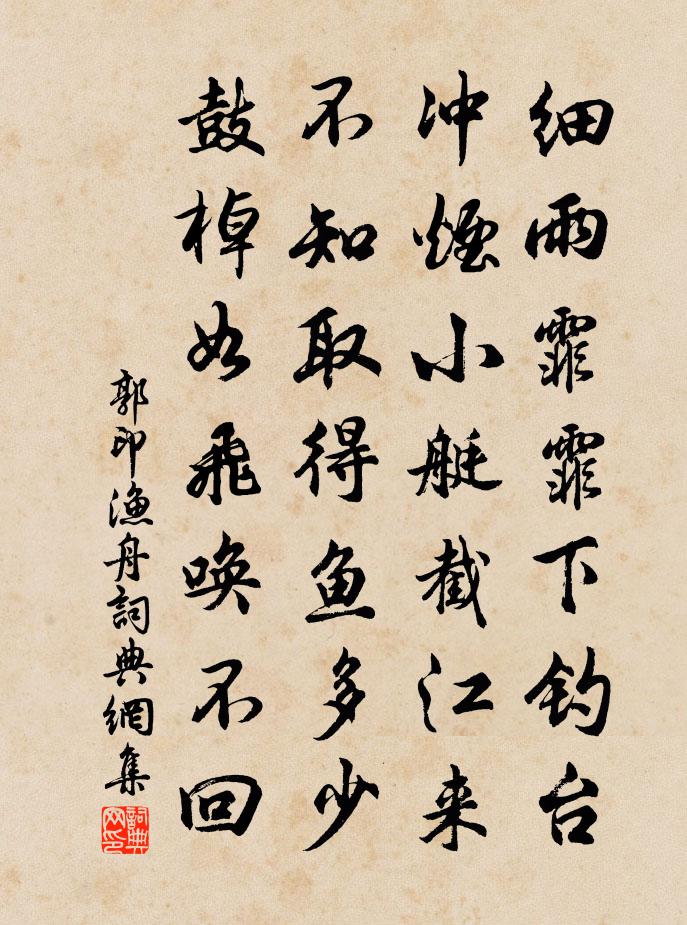 细雨霏霏下钓台
冲煙小艇截江来
不知取得鱼多少
鼓棹如飛唤不回
郭印漁舟詞典網集
詞典網印